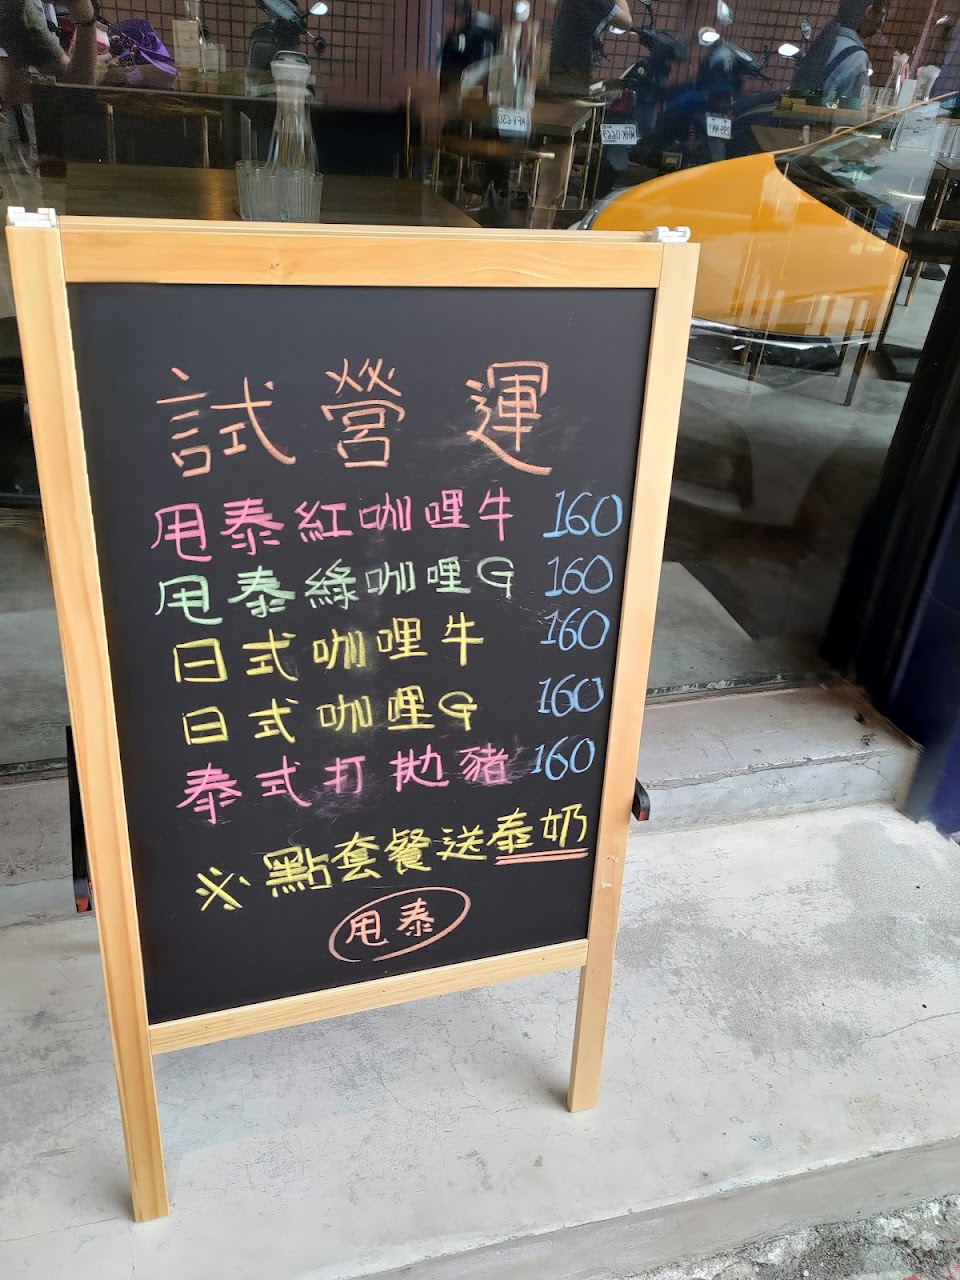 試營運
甩泰紅咖哩牛 160
甩泰綠咖哩G 160
日式咖哩牛 160
日式咖哩G 160
泰式打拋豬 160
※點套餐送泰奶
甩泰